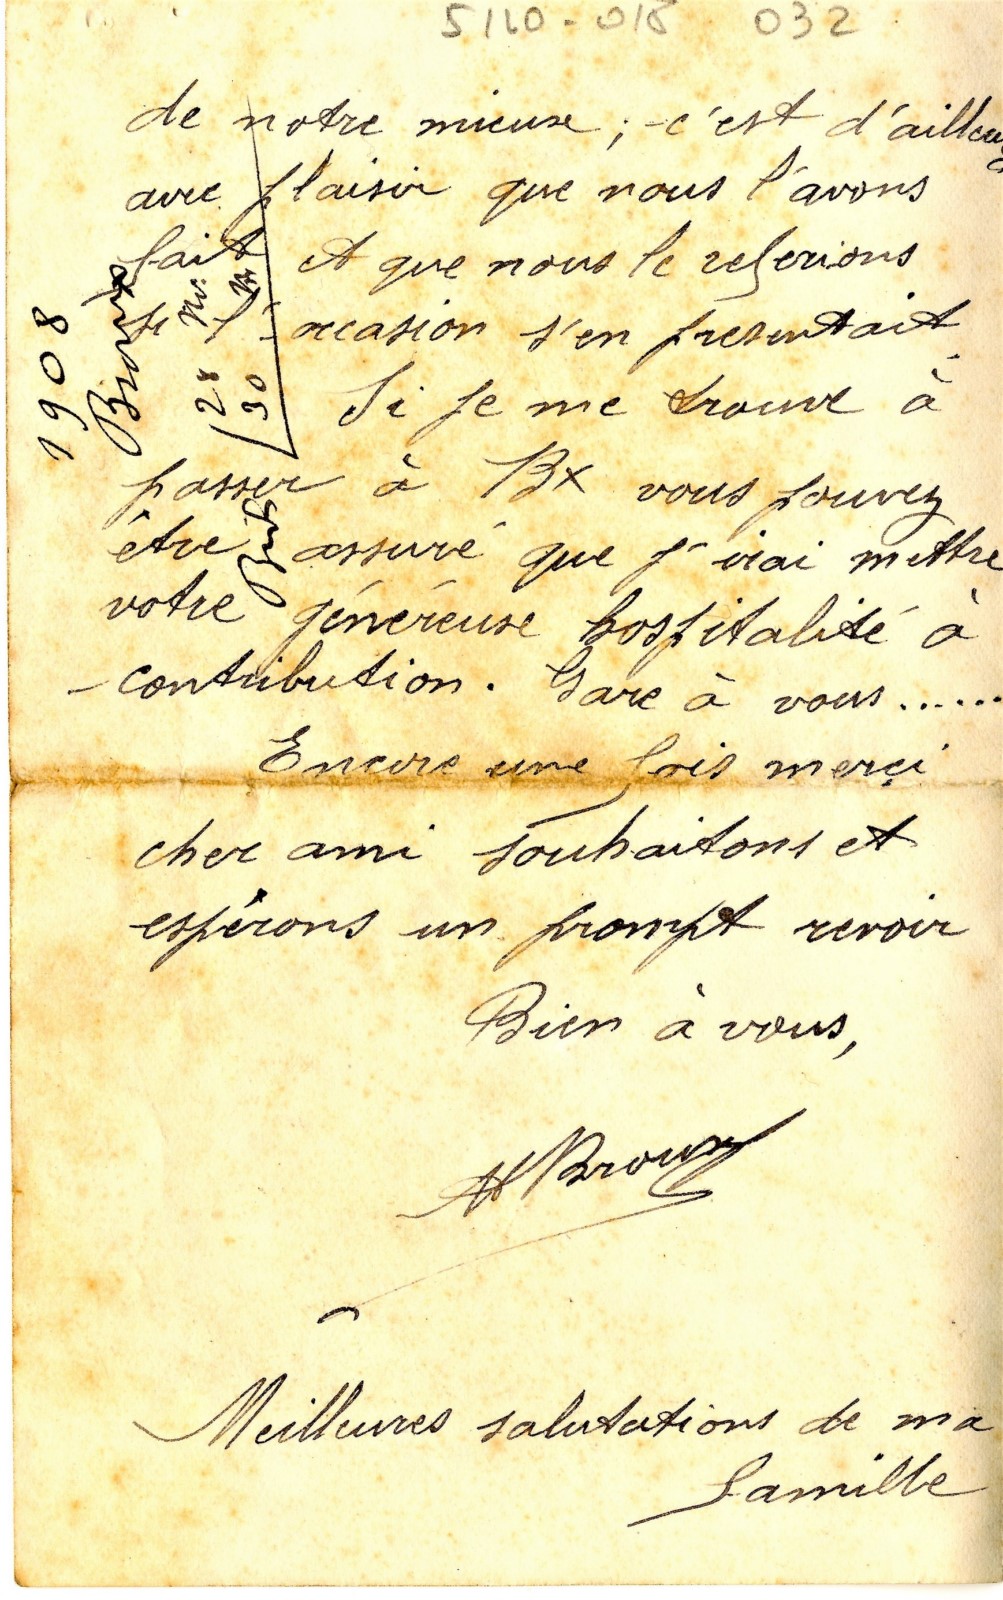 5110-018 032
de notre mieux ; c'est d'ailleurs
avec plaisir que nous l'avons
fait et que nous le referions
si l'occasion s'en presentait.
Si je me trouve à
passer à Bx vous pouvez
être assuré que j'irai mettre
votre généreuse hospitalité à
contribution. Gare à vous......
Encore une fois merçi
cher ami souhaitons et
espérons un prompt revoir
Bien à vous,
H Broun
Meilleures salutations de ma
famille
1908
28
30